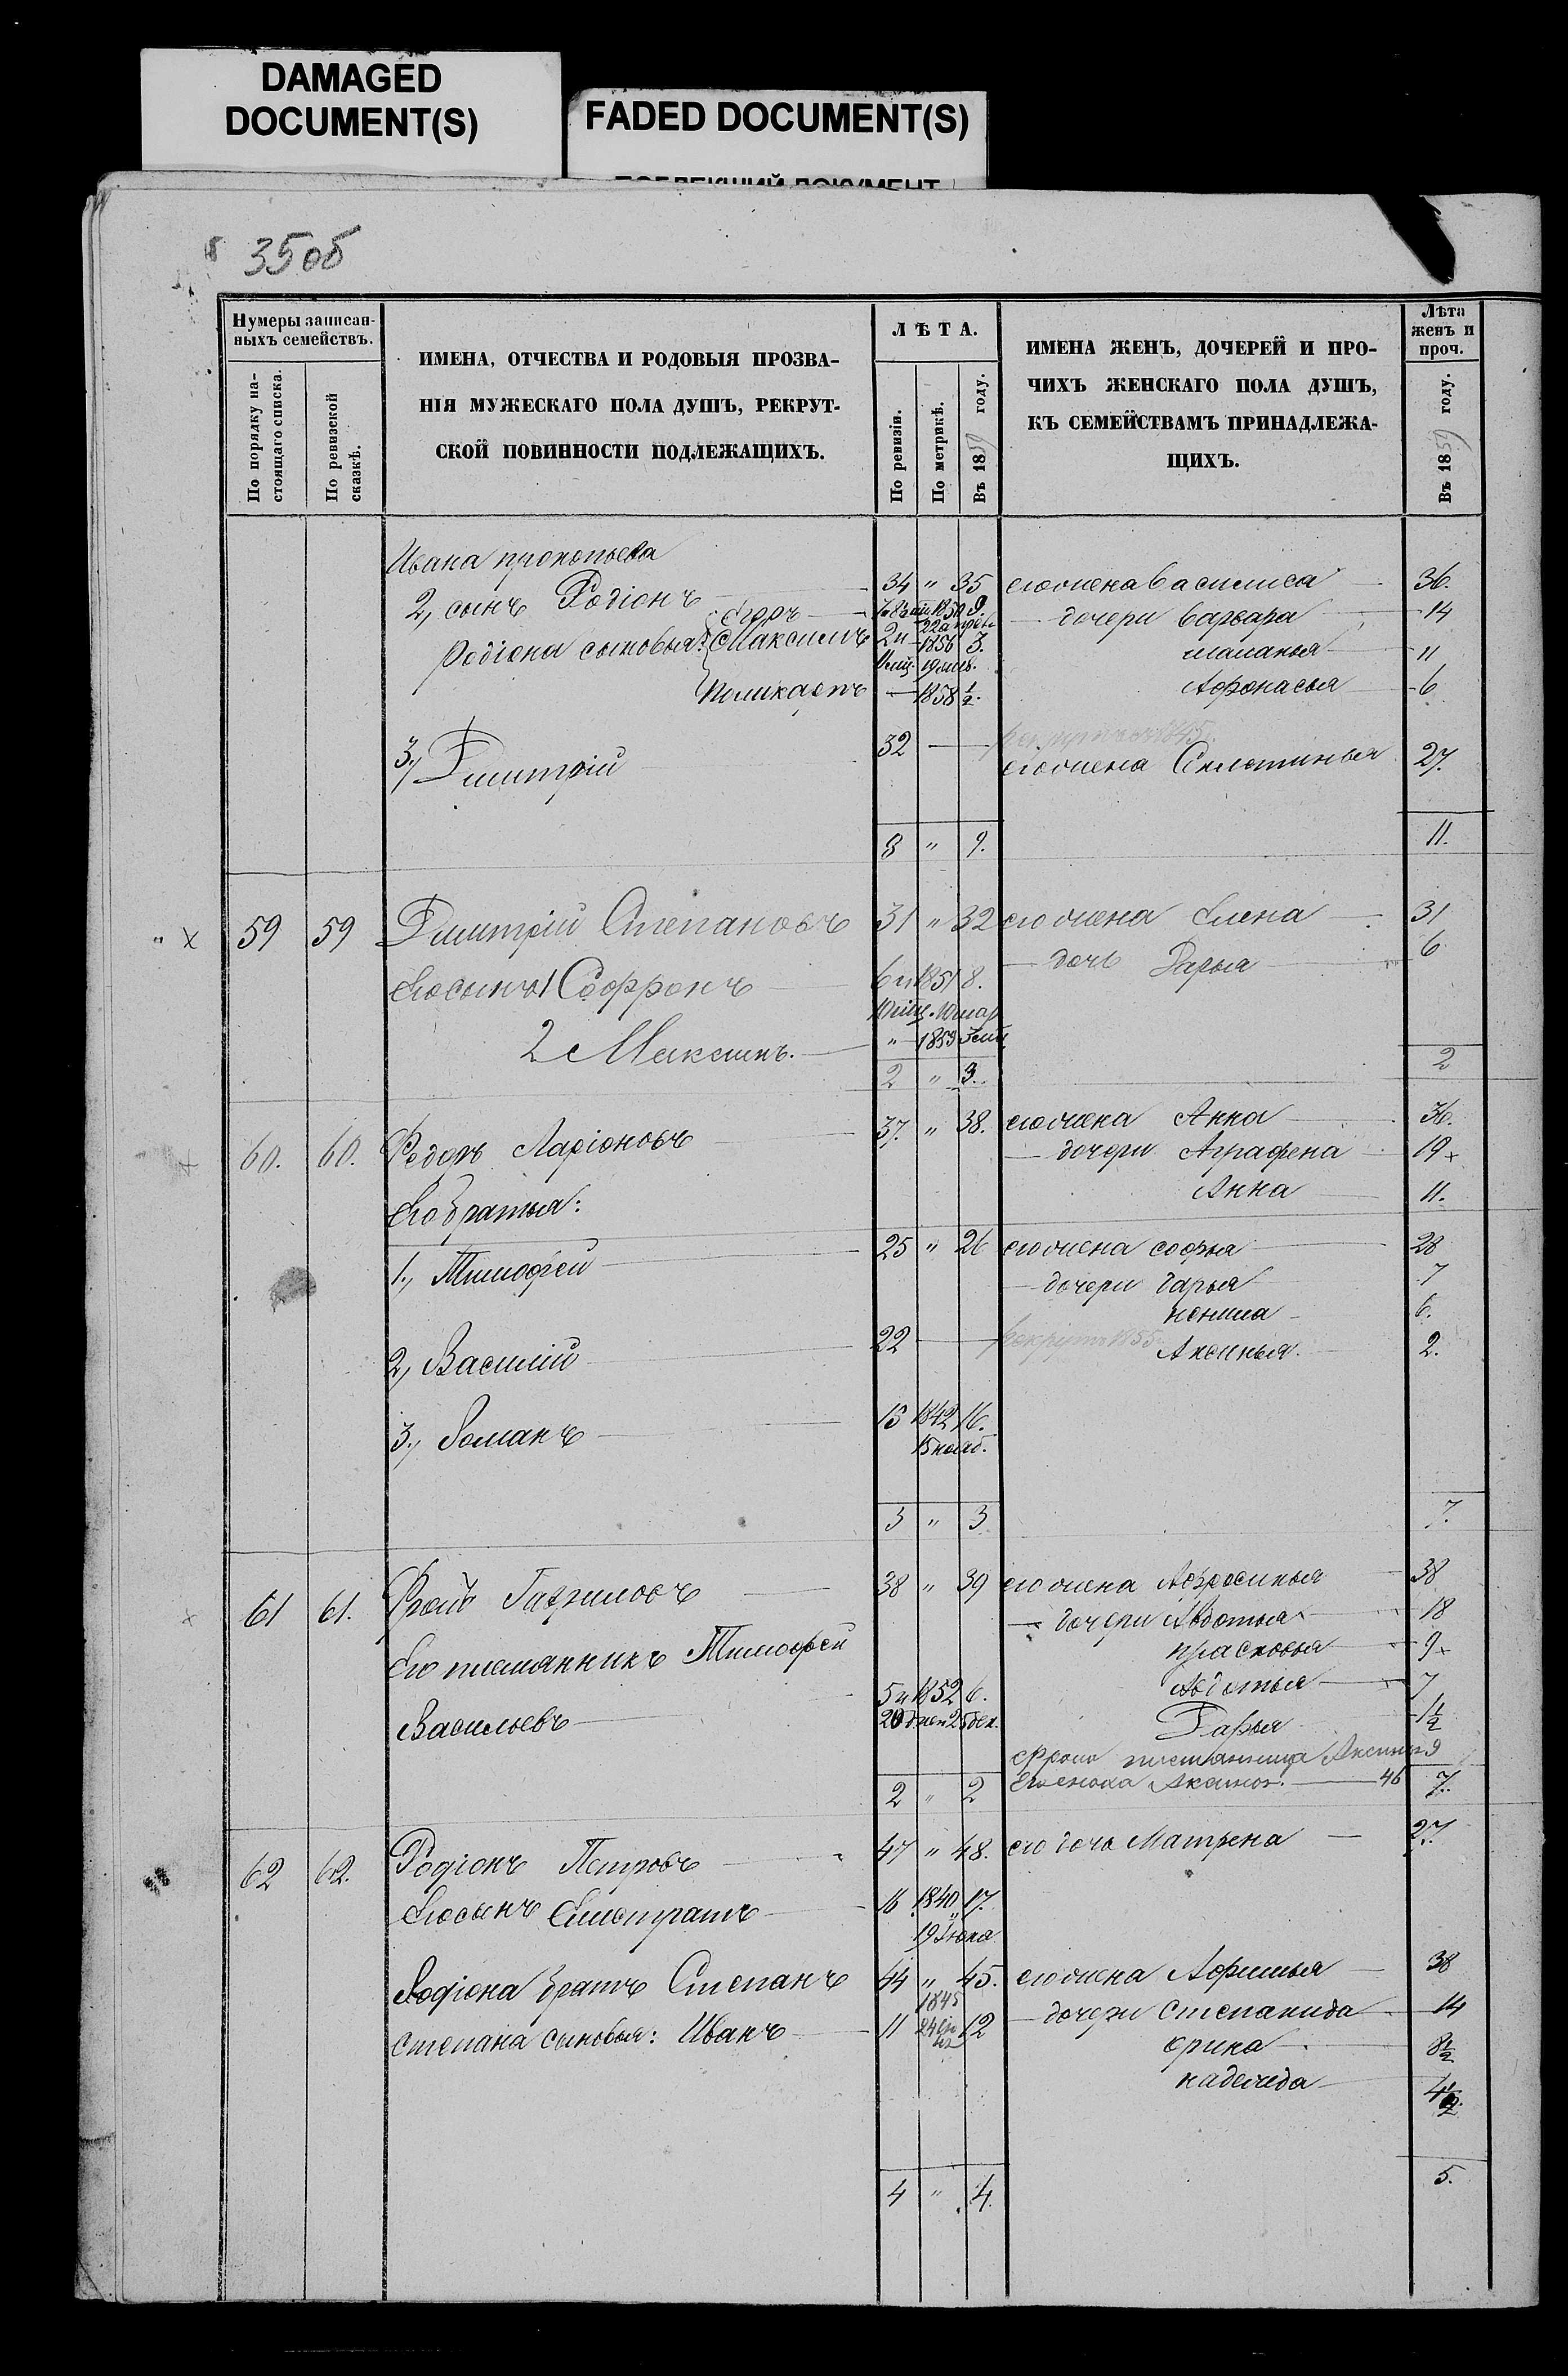 DAMAGED
DOCUMENT(S)
FADED DOCUMENT(S)
35 об
Нумеры записан-
ныхъ семействъ.
По порядку на-
стоящаго списка.
По ревизской
сказкѣ.
ИМЕНА, ОТЧЕСТВА И РОДОВЫЯ ПРОЗВА-
НІЯ МУЖЕСКАГО ПОЛА ДУШЪ, РЕКРУТ-
СКОЙ ПОВИННОСТИ ПОДЛЕЖАЩИХЪ.
ЛѢТА.
По ревизіи.
По метрикѣ.
Въ 1859 году.
ИМЕНА ЖЕНЪ, ДОЧЕРЕЙ И ПРО-
ЧИХЪ ЖЕНСКАГО ПОЛА ДУШЪ,
КЪ СЕМЕЙСТВАМЪ ПРИНАДЛЕЖА-
ЩИХЪ.
Лѣта
женъ и
проч.
Въ 1859 году.
Ивана прокопьева
2, сынъ Родіонъ 34 " 35 его жена василиса 36.
Егоръ 1850 9. дочери варвара 14
Родіона сыновья: Максимъ 1856 3. маланья 11
Поликарпъ 1858 1/2. Афонасья 6
3, Дмитрій 32 его жена 27.
8 " 9. 11.
59 59 Дмитрій Степановъ 31 " 32 его жена Елена 31
дочь Дарья 6
Его сынъ 1 Софронъ 6 1851 8.
2 Максимъ. " 1859
2 " 3. 2
60. 60. Федоръ Ларіоновъ 37. " 38. его жена Анна 36.
дочери Аграфена 19
Его братья: Анна 11.
1, Тимофей 25 " 26 его жена софья 28
дочери дарья 7
6.
2, Василій 22 рекрутъ 1855 Аксинья. 2.
3, Романъ 15 1842 16.
15 нояб.
3 " 3 7.
61 61. Фролъ Гавриловъ 38 " 39 его жена 38
дочери Авдотья 18
Его племянникъ Тимофей прасковья 9
5 1852 6. Авдотья 7
Васильевъ 20 дней 25 дек. Дарья 1 1/2
Фрола племянница Аксинья 9
2 " 2 46 7.
62 62. Родіонъ Петровъ 47 " 48. его дочь Матрена 27.
Его сынъ Елистратъ 16 1840 17.
19 Іюня
Родіона братъ Степанъ 44 " 45. его жена Афимья 38
1845
степана сыновья: Иванъ 11 12 дочери степанида 14
орина 8 1/2
надежда 4 1/2
4 " 4. 5.